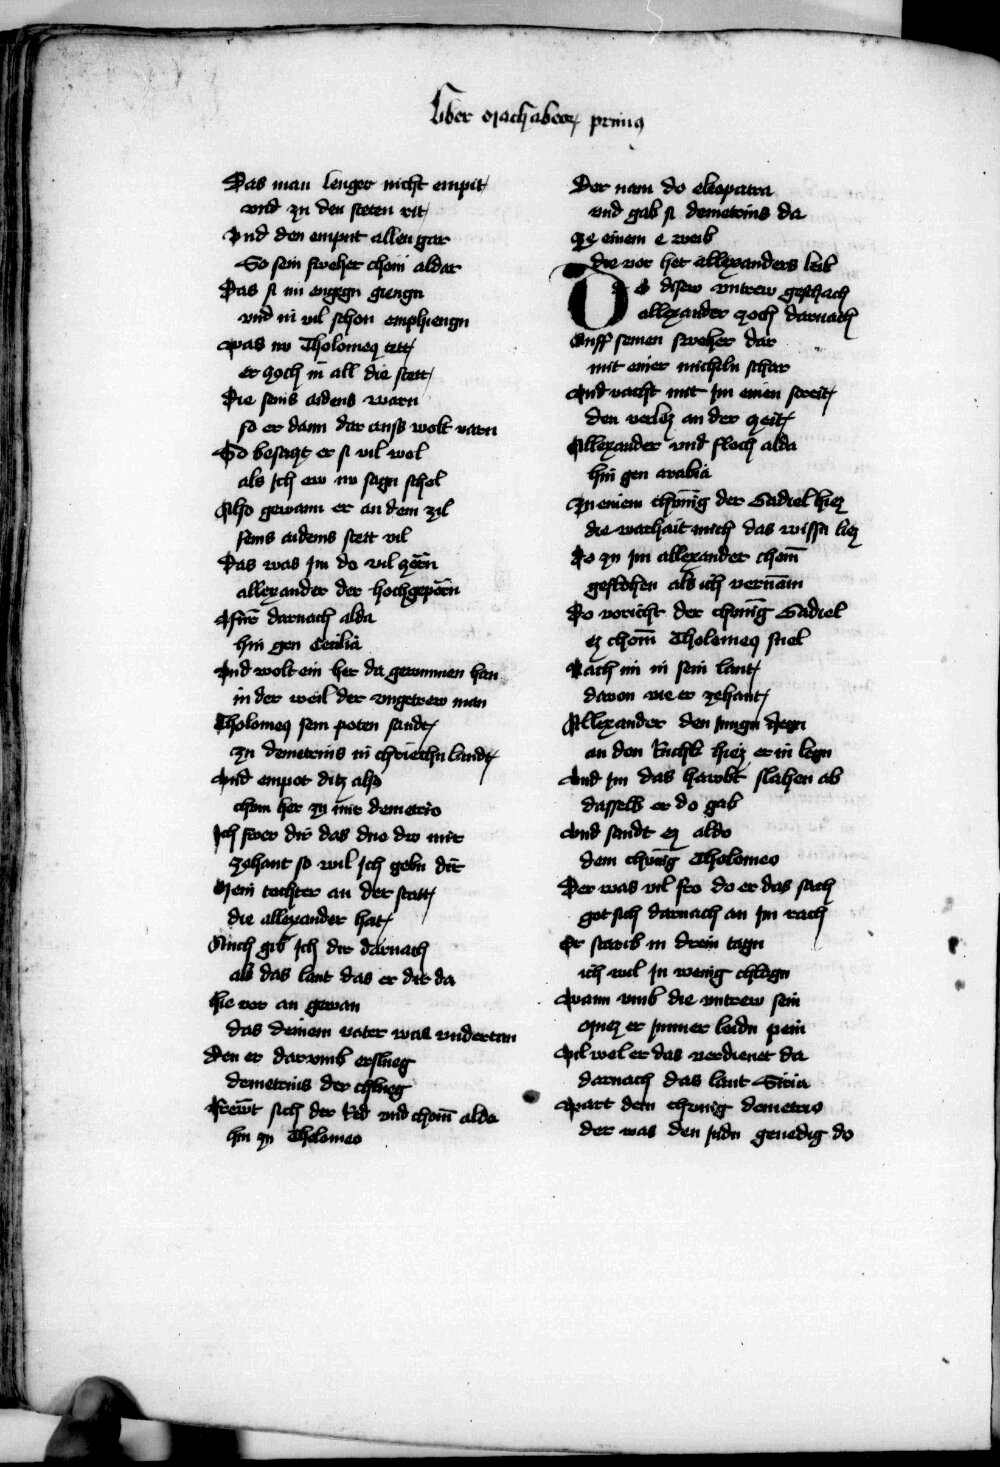 Liber Machabeorum primus
Das man lenger nicht empit
vnd zu den steten rit
Vnd den emput allen gar
So sein sweher chom aldar
Das si im engegn giengn
vnd in vil schon emphiengn
Was nw Tholomeus tett
er zoch in all die stett
Die seins aidems warn
so er dann dar auss wolt varn
So besatzt er si vil wol
als ich ew nw sagn schol
Also gewann er an dem zil
seins aidems stett vil
Das was Im do vil zorn
allexander der hochgeporn
Afur darnach alda
hin gen Cecilia
Vnd wolt ein her da gewunnen han
in der weil der vngetrew man
Tholomeus sein poten sandt
zu demetrius in chriechn landt
Vnd empot ditz also
chom her zu mir demetrio
Ich swer dir das due dw mir
zehant so wil Ich gebn dir
Mein tochter an der statt
die allexander hat
Auch gib Ich dir darnach
als das lant das er dir da
hie vor an gewan
das deinem vater was vndertan
Den er darvmb erslueg
demetrius der chlueg
frewt sich der Red vnd chom alda
hin zu Tholomeo
Der nam do cleopatra
vnd gab si demetrius da
ze einem e weib
die vor het allexanders leib
Do disew vntrew geschach
allexander zoch darnach
Auff seinen sweher dar
mit einer micheln schar
Vnd vacht mit Im einen streit
den verlos an der zeit
Allexander vnd floch alda
hin gen arabia
Zu einem chunig der Sadiel hiez
die warhait mich das wissn liez
Do zu Im allexander chom
geflohen als ich vernam
Do voricht der chunig Sadiel
ez chom Tholomeus snel
Nach im in sein lant
davon vie er zehant
Allexander den Jungn degn
an den Ruckh hiez er in legn
Vnd Im das hawbt slahen ab
dasselb er do gab
Vnd sandt ez aldo
dem chunig Tholomeo
Der was vil fro do er das sach
got sich darnach an Im rach
Er starib in drein tagn
ich wil In wenig chlagn
Wann vmb die vntrew sein
muez er Immer leidn pein
Vil wol er das verdienet da
darnach das lant Siria
Wart dem chunig demetrio
der was den Judn genedig do